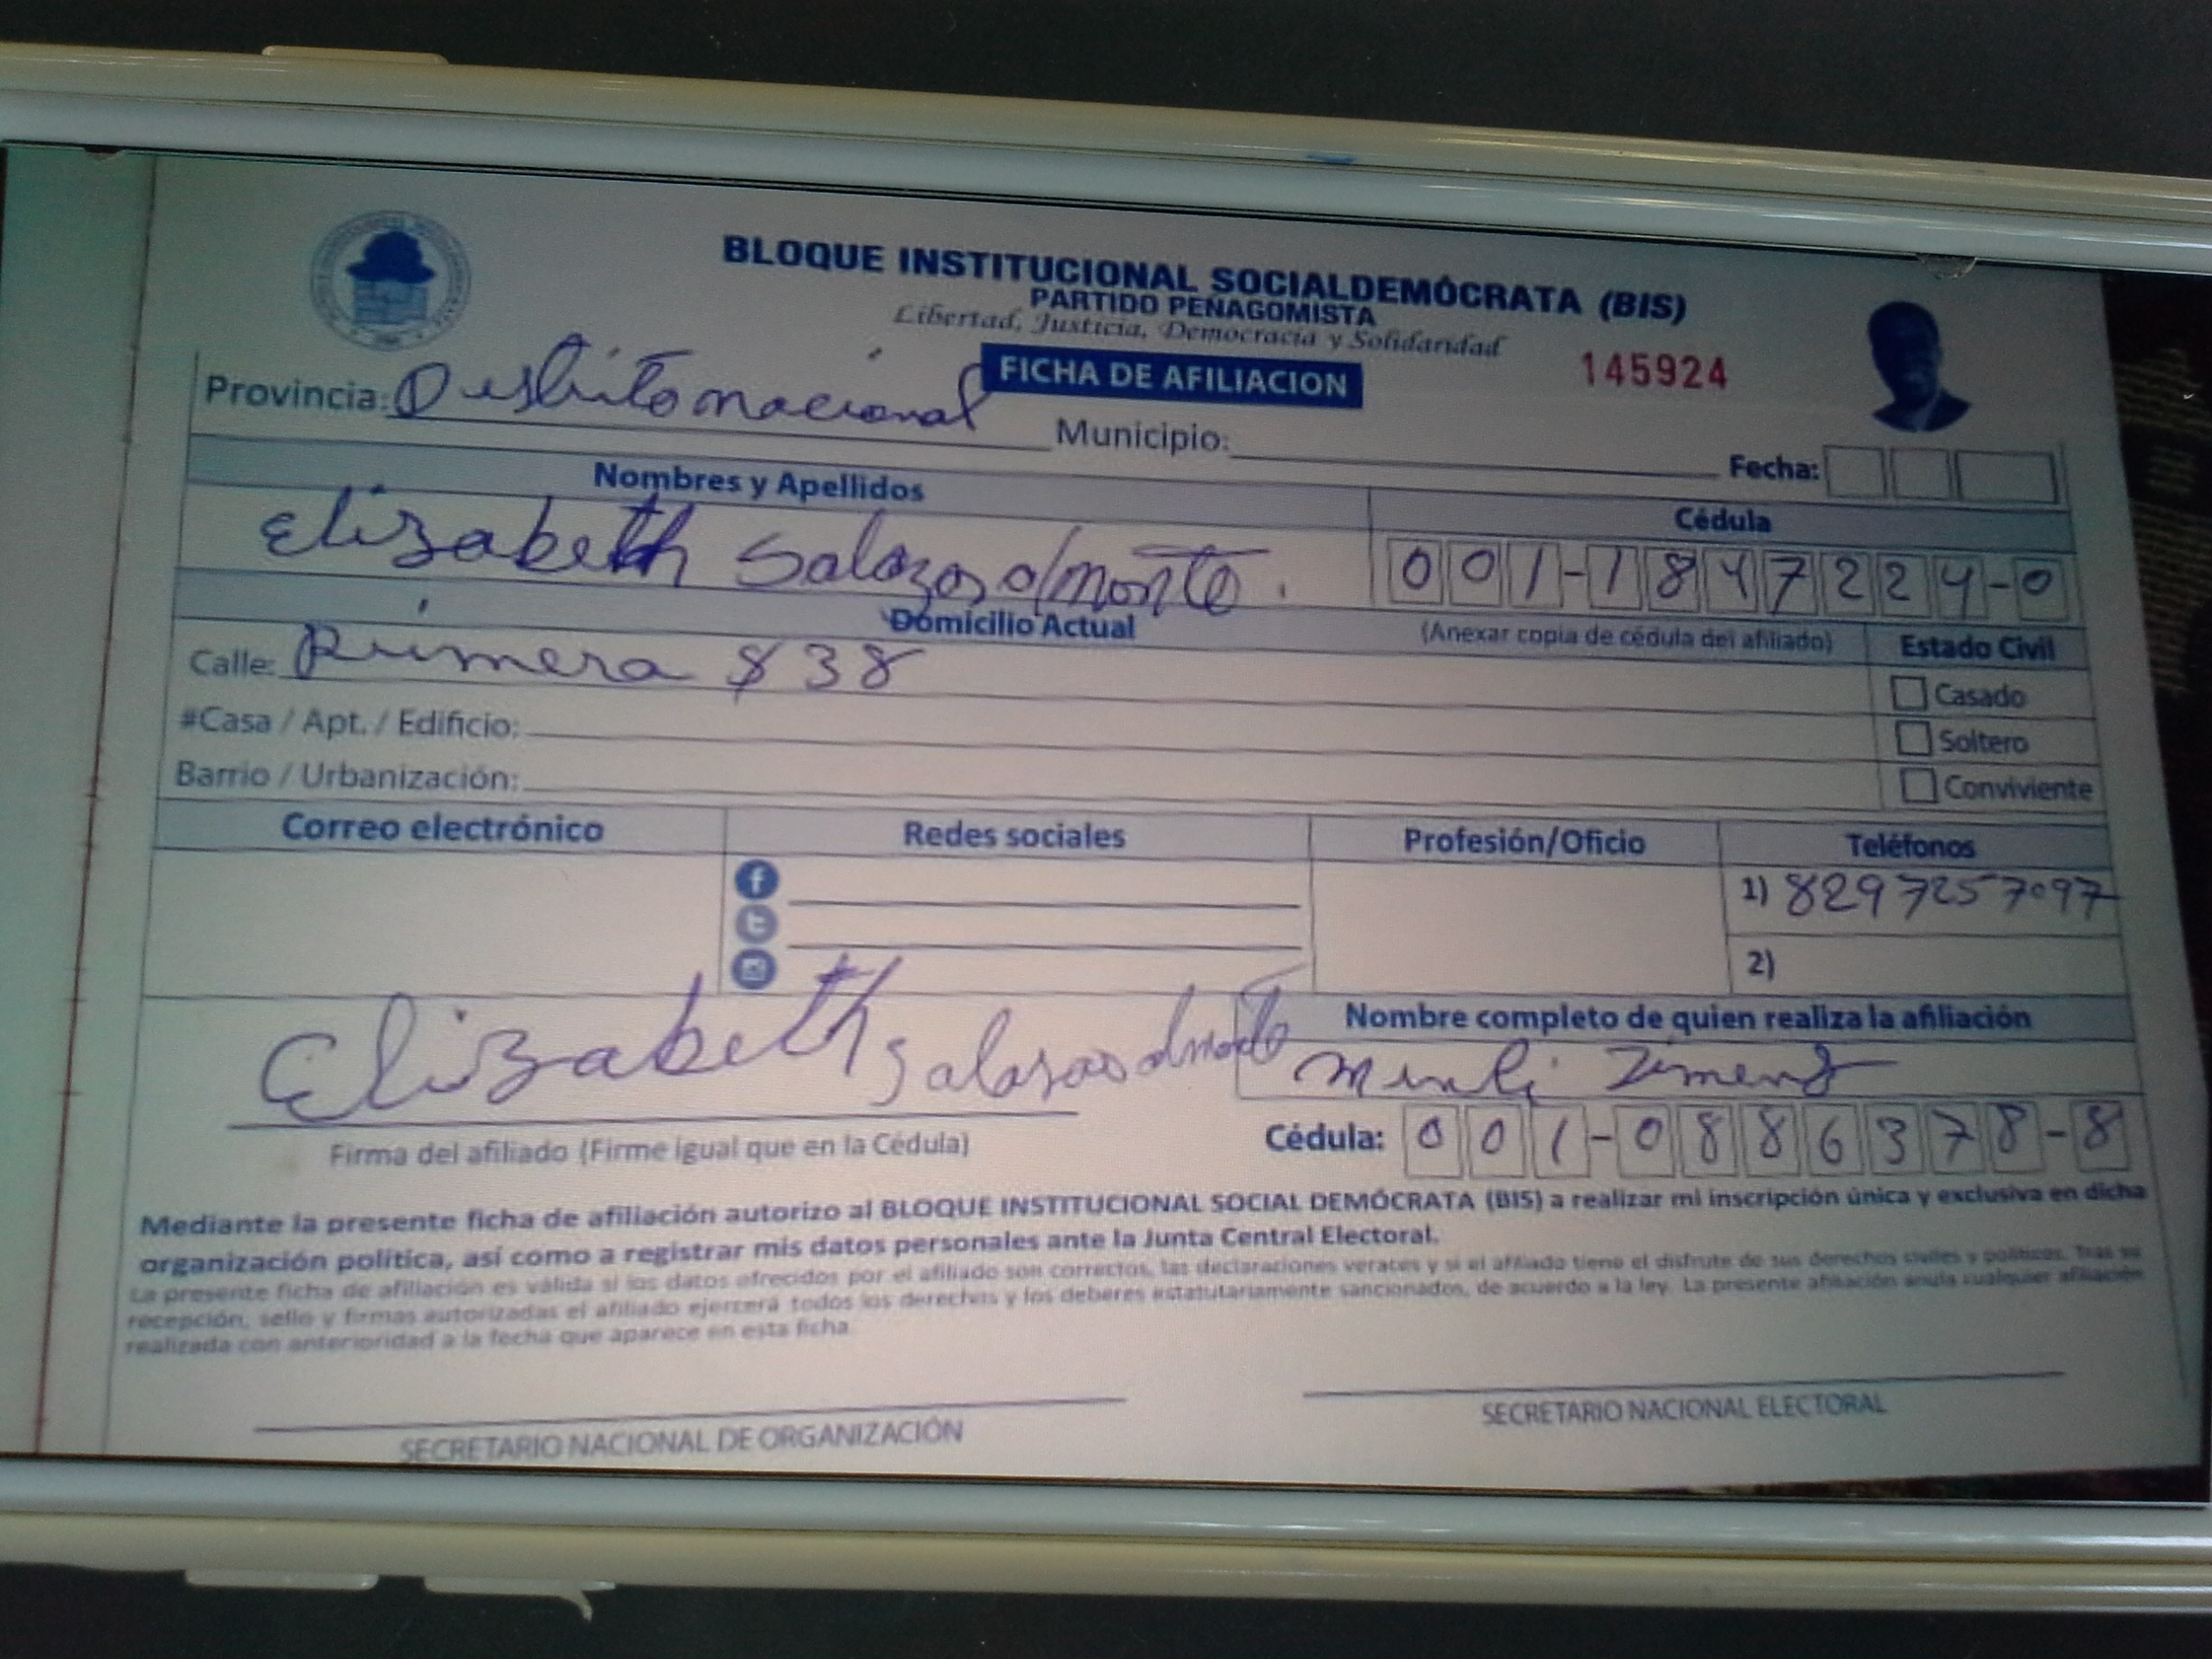 BLOQUE INSTITUCIONAL SOCIALDEMÓCRATA (BIS)
PARTIDO PEÑAGOMISTA
Libertad, Justicia, Democracia y Solidaridad
FICHA DE AFILIACION
145924
Provincia: Distrito nacional Municipio: Fecha:
Nombres y Apellidos Cédula
Elizabeth Salazar almonte. 001-1847224-0
Domicilio Actual (Anexar copia de cédula del afiliado) Estado Civil
Calle: Primera $ 38
Casado
#Casa / Apt. / Edificio: Soltero
Barrio / Urbanización: Conviviente
Correo electrónico Redes sociales Profesión/Oficio Teléfonos
1) 8297257097
2)
Nombre completo de quien realiza la afiliación
Elizabeth Salazar almonte
Firma del afiliado (Firme igual que en la Cédula) Cédula: 001-0886378-8
Mediante la presente ficha de afiliación autorizo al BLOQUE INSTITUCIONAL SOCIAL DEMÓCRATA (BIS) a realizar mi inscripción única y exclusiva en dicha
organización política, así como a registrar mis datos personales ante la Junta Central Electoral.
La presente ficha de afiliación es válida si los datos ofrecidos por el afiliado son correctos, las declaraciones veraces y si el afiliado tiene el disfrute de sus derechos civiles y políticos. Tras su
recepción, sello y firmas autorizadas el afiliado ejercerá todos los derechos y los deberes estatutariamente sancionados, de acuerdo a la ley. La presente afiliación anula cualquier afiliación
realizada con anterioridad a la fecha que aparece en esta ficha
SECRETARIO NACIONAL DE ORGANIZACIÓN
SECRETARIO NACIONAL ELECTORAL